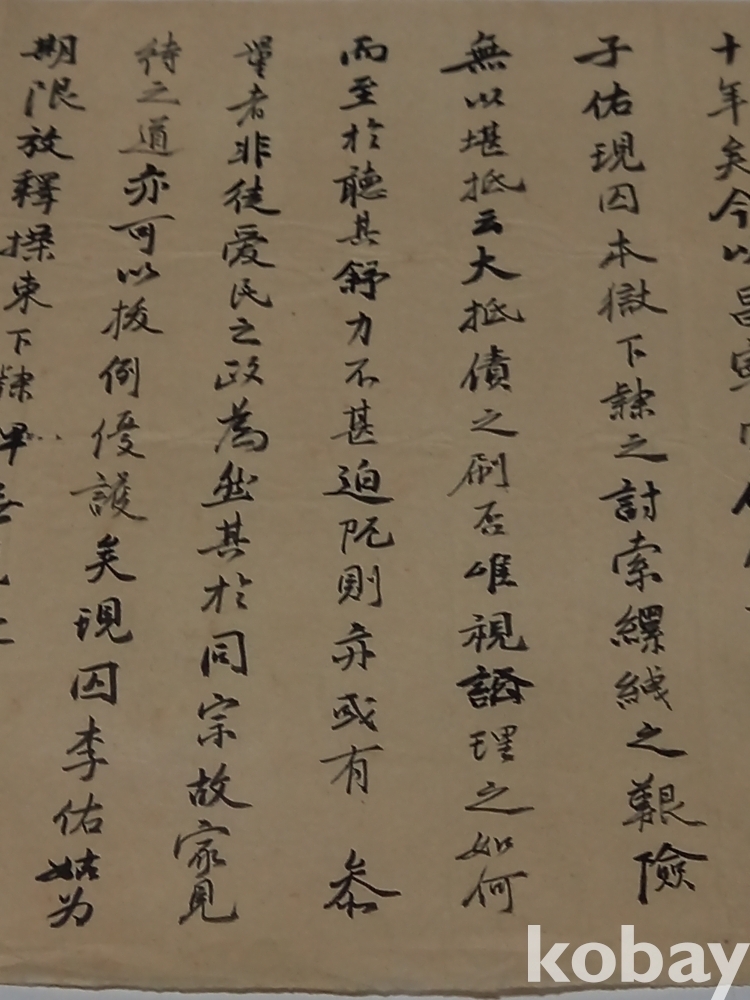 十年矣今以
子佑現囚本獄下隸之討索縲絏之艱險
無以堪抵云大抵債之刷否唯視證理之如何
而至於聽其舒力不甚迫阨則亦或有 叅
量者非徒愛民之政為然其於同宗故家見
待之道亦可以拔例優護矣現囚李佑姑为
期限放釋操束下隸
kobay